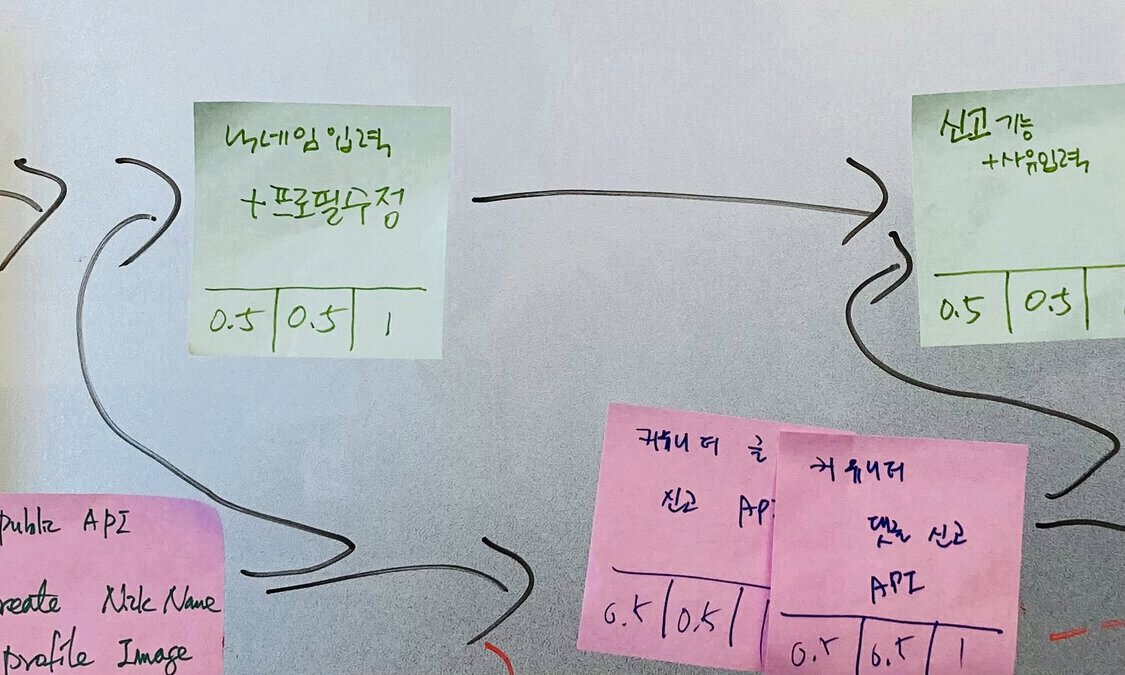 닉네임 입력
+프로필수정
0.5 0.5 1
신고 기능
+사유입력
0.5 0.5
public API
reate NickName
profile Image
커뮤니터 글
신고 AP
0.5 0.5
커뮤니터
댓글 신고
API
0.5 0.5 1